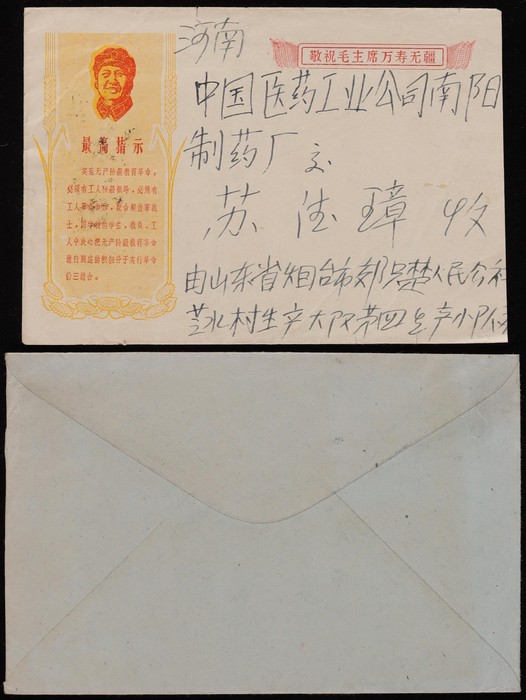 河南
敬祝毛主席万寿无疆
中国医药工业公司南阳
制药厂 交
苏德璋 收
由山东省烟台市郊只楚人民公社
芝水村生产大队第四生产小队
最高指示
实现无产阶级教育革命，
必须有工人阶级领导，必须有
工人群众参加，配合解放军战
士，同学校的学生、教员、工
人中决心把无产阶级教育革命
进行到底的积极分子实行革命
的三结合。